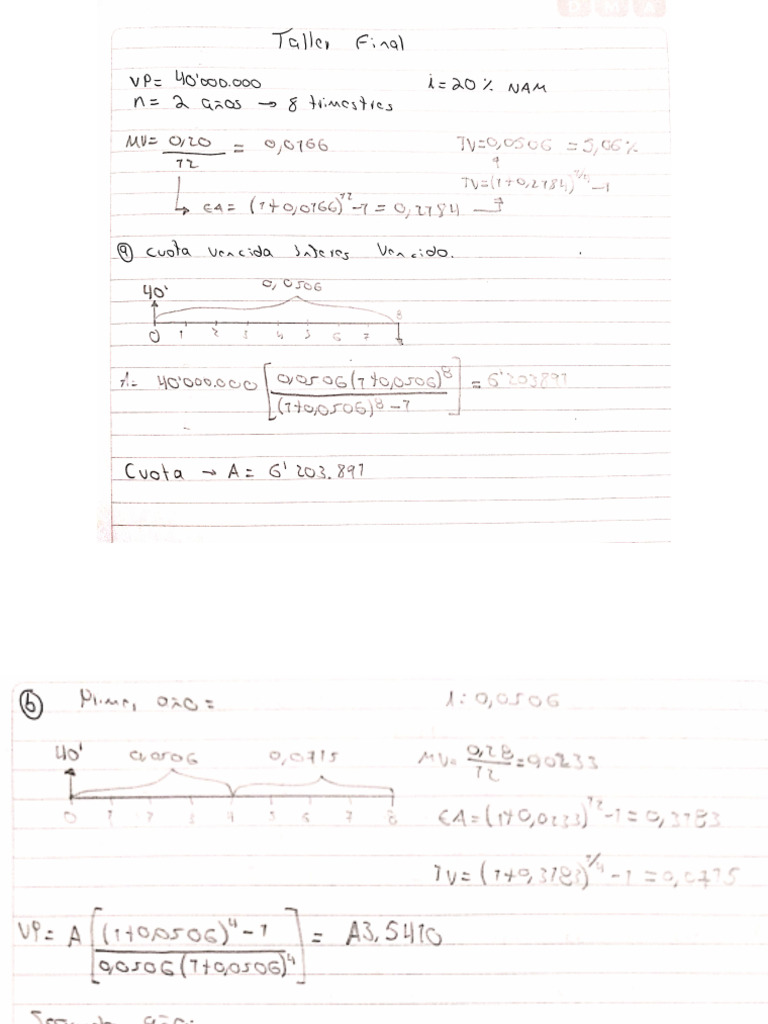 Taller Final
VP= 40'000.000 i=20% NAM
n= 2 años → 8 trimestres
MV= 0,20/12 = 0,0166 TV=0,0506 = 5,06%
TV=(1+0,2184)^1/4 -1
EA= (1+0,0166)^12 -1 = 0,2184
ⓐ Cuota vencida Interes Vencido.
40' 0,0506
0 1 2 3 4 5 6 7 8
A= 40'000.000 [0,0506(1+0,0506)^8 / (1+0,0506)^8 -1] = 6'203891
Cuota → A= 6'203.891
ⓑ Primer año= i: 0,0506
40' 0,0506 0,0715 MV= 0,28/12 = 0,0233
0 1 2 3 4 5 6 7 8 EA=(1+0,0233)^12 -1=0,3183
TV=(1+0,3183)^1/4 -1=0,0715
VP= A [(1+0,0506)^4 -1 / 0,0506(1+0,0506)^4] = A3,5410